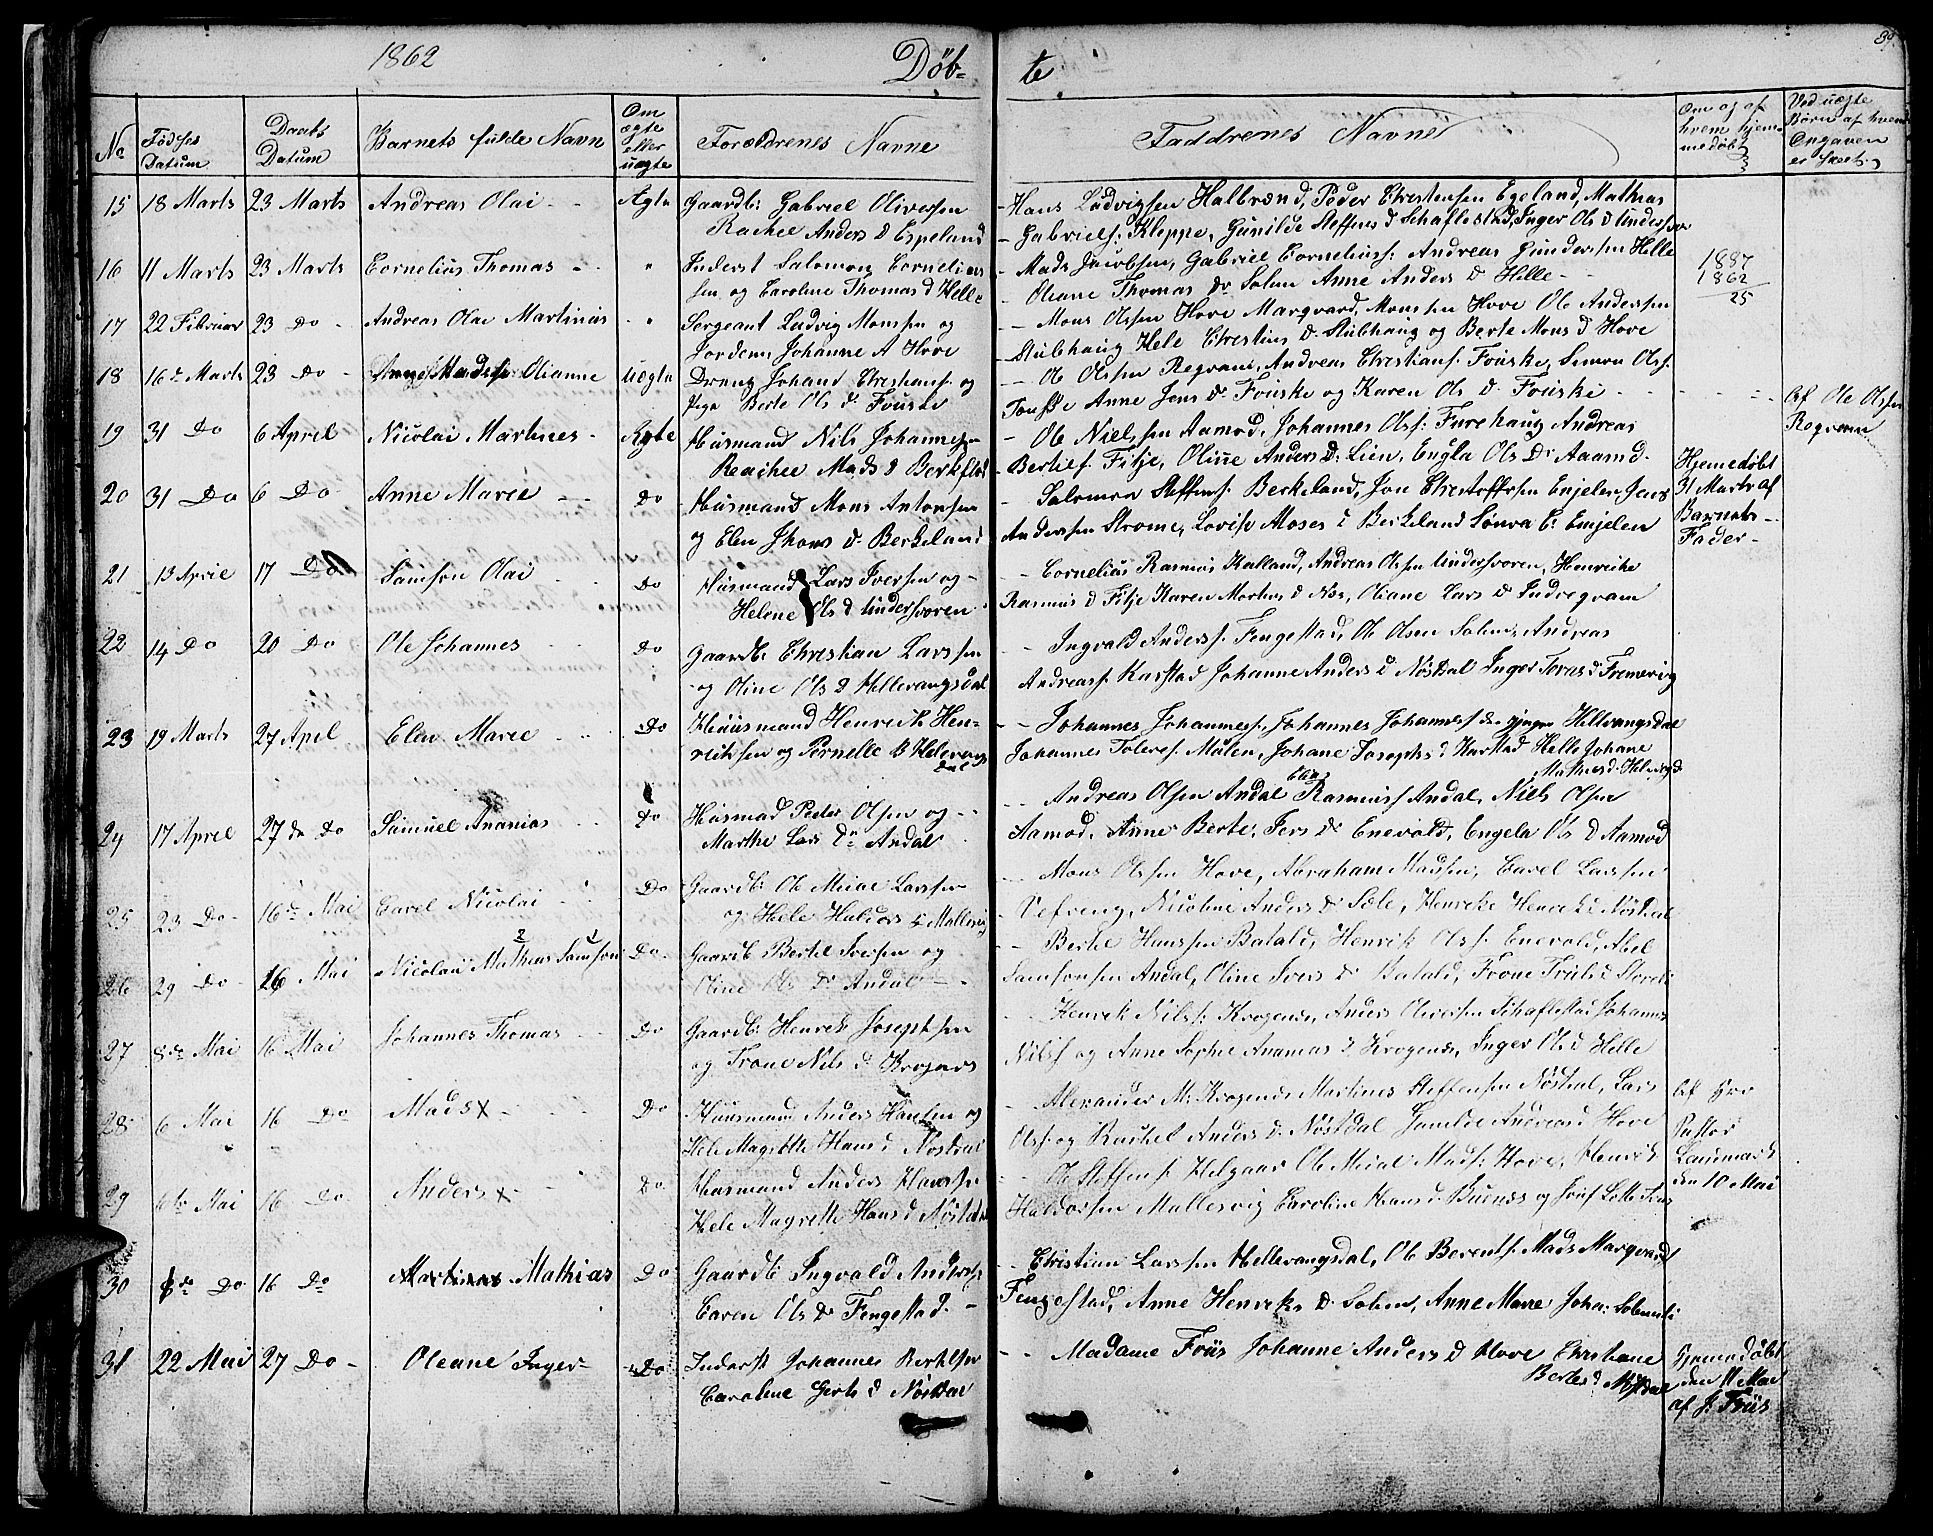 1862 Döb= te 89.
No
Födses Datum
Daabs Datum
Barnets fulde Navn
Om ægte eller uægte
Forældrenes Navne
Faddrenes Navne
Om og af hvem hjemmedöbt
Ved uægte Börn af hvem Ongaven er skeet
15 18 Marts 23 Marts Andreas Olai Ægte Gaardb: Gabriel Oliversen
Rachel Anders D Espeland
Hans Ludvigsen Halbrend, Peder Christensen Egeland, Mathias
Gabriels: Kleppe, Gunilde Steffens d Schaflestad, Inger Ols d Undersvor
16 11 Marts 23 Marts Cornelius Thomas " Inderst Salomon Cornelius
sen og Caroline Thomas d Helle
Mads Jacobsen, Gabriel Cornelius: Andreas Gundersen Helle
Oliane Thomas Dr Solem Anne Anders D Helle
1887
1862
25
17 22 Februar 23 Do Andreas Olai Martinus " Sergeant Ludvig Monssen og
Jordem Johanne A Hove
Mons Olssen Hove Marqvard Monssen Hove Ole Andersen
Stubhaug Hele Christins D. Stubhaug og Berte Mons d Hove
18 16de Marts 23 Do Olianne Uægte Dreng Johans Christians: og
Pige Berte Ols D. Fouske
Ole Olssen Regvam, Andreas Christians: Fouske, Simon Ols:
Fouske Anne Jens Dr Fouske og Karen Ols D. Fouske
Af Ole Olsen
Regvam
19 31 Do 6 April Nicolai Martines Ægte Husmand Nils Johannes
Reachel Mads D Berkeland
Ole Nielssen Aamod, Johannes Ols: Furehaug Andreas
Bertils: Fitje, Oline Anders D: Lien, Engla Ols Dr Aaamd
20 31 Do 6 Do Anne Marie Do Husmand Mons Antonsen
og Elen Jhons D. Berkeland
Salomon Steffens: Berkeland, Jon Christoffersen Enjelen Jens
Andersen Strome, Lovise Moses d Berkeland Sönva E: Enjelen
Hjemedöbt
31 Marts af
Barnets
Fader
21 13 April 17 Do Samson Olai Do Husmand Lars Iversen og
Helene Ols d Undersvoren
Cornelius Rasmus Kalland, Andreas Olsen Undersvoren, Henrike
Rasmus d Fitje Karen Mortens d Nes, Oliane Lars D Indregvam
22 14 Do 20 Do Ole Johannes Do Gaardb: Christian Larssen
og Oline Ols d Hellevangsdal
Ingvald Anders: Fengestad, Ole Olsen Solem, Andreas
Andreas: Karstad Johanne Anders d Nöstdal Inger Toras d Fremevig
23 19 Marts 27 Apel Elen Marie Do Huusmand Henrik Hen-
riksen og Pernelle D Helevangs
dal
Johannes Johannes: Johannes Johannes: den yngre Hellevangsdal
Johannes Toleres: Malen, Johane Josephs d Karstad Helle Johane
Mathias d. Helevagd
24 17 April 27 de Do Samuel Ananias Do Husmad Peder Olsen og
Marthe Lars Dr Andal
Andreas Olsen Andal Elias Rasmus: Andal, Niels Olsen
Aamod, Anne Berte, Jers D. Enevold, Engela Ols D Aamod
25 23 Do 16de Mai Carel Nicolai Do Gaardb: Ole Micael Larssen
og Hele Haldors D Mallesvig
Mons Olssen Hove, Abraham Madsen, Carel Larssen
Vefreng, Nicoline Anders D Sæle, Henreke Henrek d Nöstdal
26 29 Do 16 Mai Nicolai Mathias 2 Samson 1 Do Gaardb Bertel Iversen og
Oline Ols D. Andal
Berthe Hanssen Batald, Henrik Ols: Enevold, Abel
Samsonsen Andal, Oline Ivers D. Batald, Frone Truls d Stordi
27 8de Mai 16 Mai Johannes Thomas Do Gaardb: Henrik Josephsen
og Frone Nils d Krognes
Henrik Nils: Krogenes, Anders Oliversen Schaflestad Johannes
Nils: og Anne Sophie Ananias d Krogenes, Inger Ols d Helle
28 6 Mai 16 Do Mads x Do Huusmand Anders Hansen og
Hele Magrette Hans d Nöstdal
Alexander M. Krogenes Martines Steffensen Nöstdal, Lars
Ols: og Rachel Anders d. Nöstdal Gunelde Andreas d Hove
Af Hrr
Pastor
Landmark
den 10 Mai
29 6te Mai 16 Do Anders x Do Husmand Anders Hanssen
Hele Magrette Hans d Nöstdal
Ole Steffens: Helgaas Ole Micial Mads: Hove, Henrik
Haldorsen Mallesvig Caroline Hans d. Buenes og Josef Lotte Fens
30 de Do 16 Do Martinus Mathias Do Gaardb: Ingvald Anders:
Caren Ols D. Fengestad
Christian Larssen Hellevangsdal, Ole Berents: Mads Marqvard
Fengestad, Anne Henreks D. Solem, Anne Marie Joha: Solemsli
31 22 Mai 27 Do Oleane Inger Do Inderst Johannes Bertelsen
Caroline Gerts d Nöstdal
Madame Friis Johanne Anders D Hove Christiane
Bertes d Nöstdal
Hjemmedöbt
den 11 Mai
af J. Friis